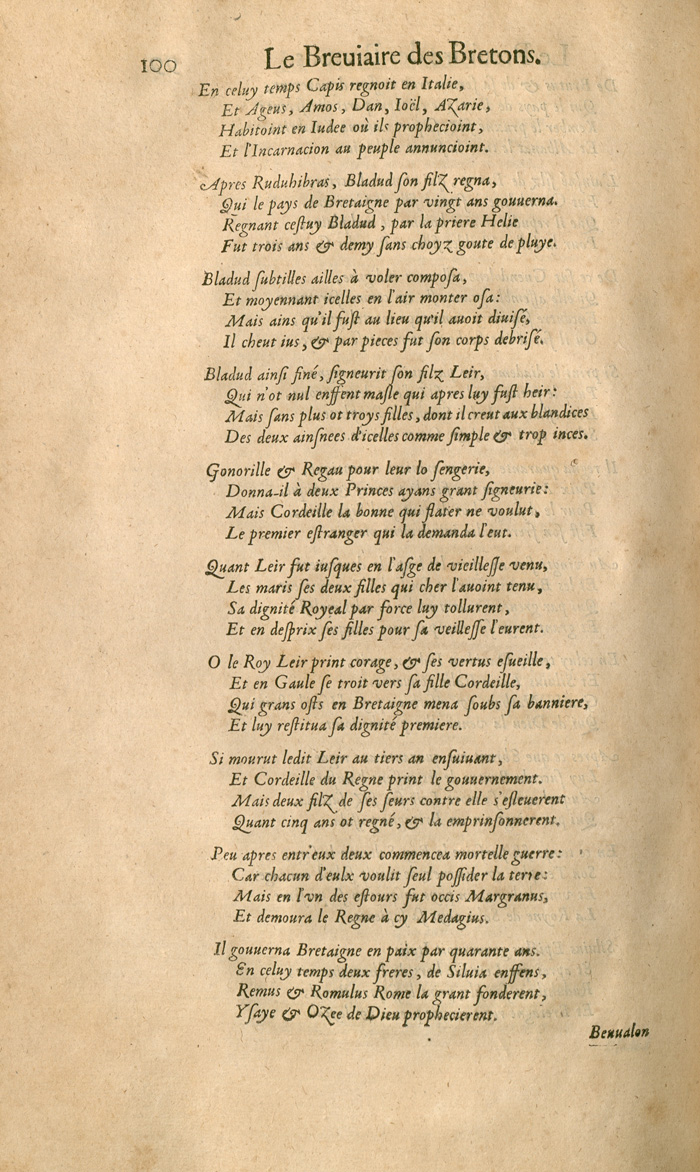 100 Le Breuiaire des Bretons.
En celuy temps Capis regnoit en Italie,
Et Ageus, Amos, Dan, Ioël, AZarie,
Habitoint en Iudee où ils prophecioint,
Et l'Incarnacion au peuple annuncioint.
Apres Ruduhibras, Bladud ſon filZ regna,
Qui le pays de Bretaigne par vingt ans gouuerna.
Regnant ceſtuy Bladud, par la priere Helie
Fut trois ans & demy ſans choyz goute de pluye.
Bladud ſubtilles ailles à voler compoſa,
Et moyennant icelles en l'air monter oſa:
Mais ains qu'il fuſt au lieu qu'il auoit diuiſé,
Il cheut ius, & par pieces fut ſon corps debriſé.
Bladud ainſi finé, ſigneurit ſon filz Leir,
Qui n'ot nul enffent maſle qui apres luy fuſt heir:
Mais ſans plus ot troys filles, dont il creut aux blandices
Des deux ainſnees d'icelles comme ſimple & trop inces.
Gonorille & Regau pour leur lo ſengerie,
Donna-il à deux Princes ayans grant ſigneurie:
Mais Cordeille la bonne qui flater ne voulut,
Le premier eſtranger qui la demanda l'eut.
Quant Leir fut iuſques en l'aſge de vieilleſſe venu,
Les maris ſes deux filles qui cher l'auoint tenu,
Sa dignité Royeal par force luy tollurent,
Et en deſprix ſes filles pour ſa veilleſſe l'eurent.
O le Roy Leir print corage, & ſes vertus eſueille,
Et en Gaule ſe troit vers ſa fille Cordeille,
Qui grans oſts en Bretaigne mena ſoubs ſa banniere,
Et luy reſtitua ſa dignité premiere.
Si mourut ledit Leir au tiers an enſuiuant,
Et Cordeille du Regne print le gouuernement.
Mais deux filZ de ſes ſeurs contre elle s'eſleuerent
Quant cinq ans ot regné, & la emprinſonnerent.
Peu apres entr'eux deux commencea mortelle guerre:
Car chacun d'eulx voulit ſeul poſſider la terre:
Mais en l'vn des eſtours fut occis Margranus,
Et demoura le Regne à cy Medagius.
Il gouuerna Bretaigne en paix par quarante ans.
En celuy temps deux freres, de Siluia enffens,
Remus & Romulus Rome la grant fonderent,
Yſaye & OZee de Dieu prophecierent.
Beuualon